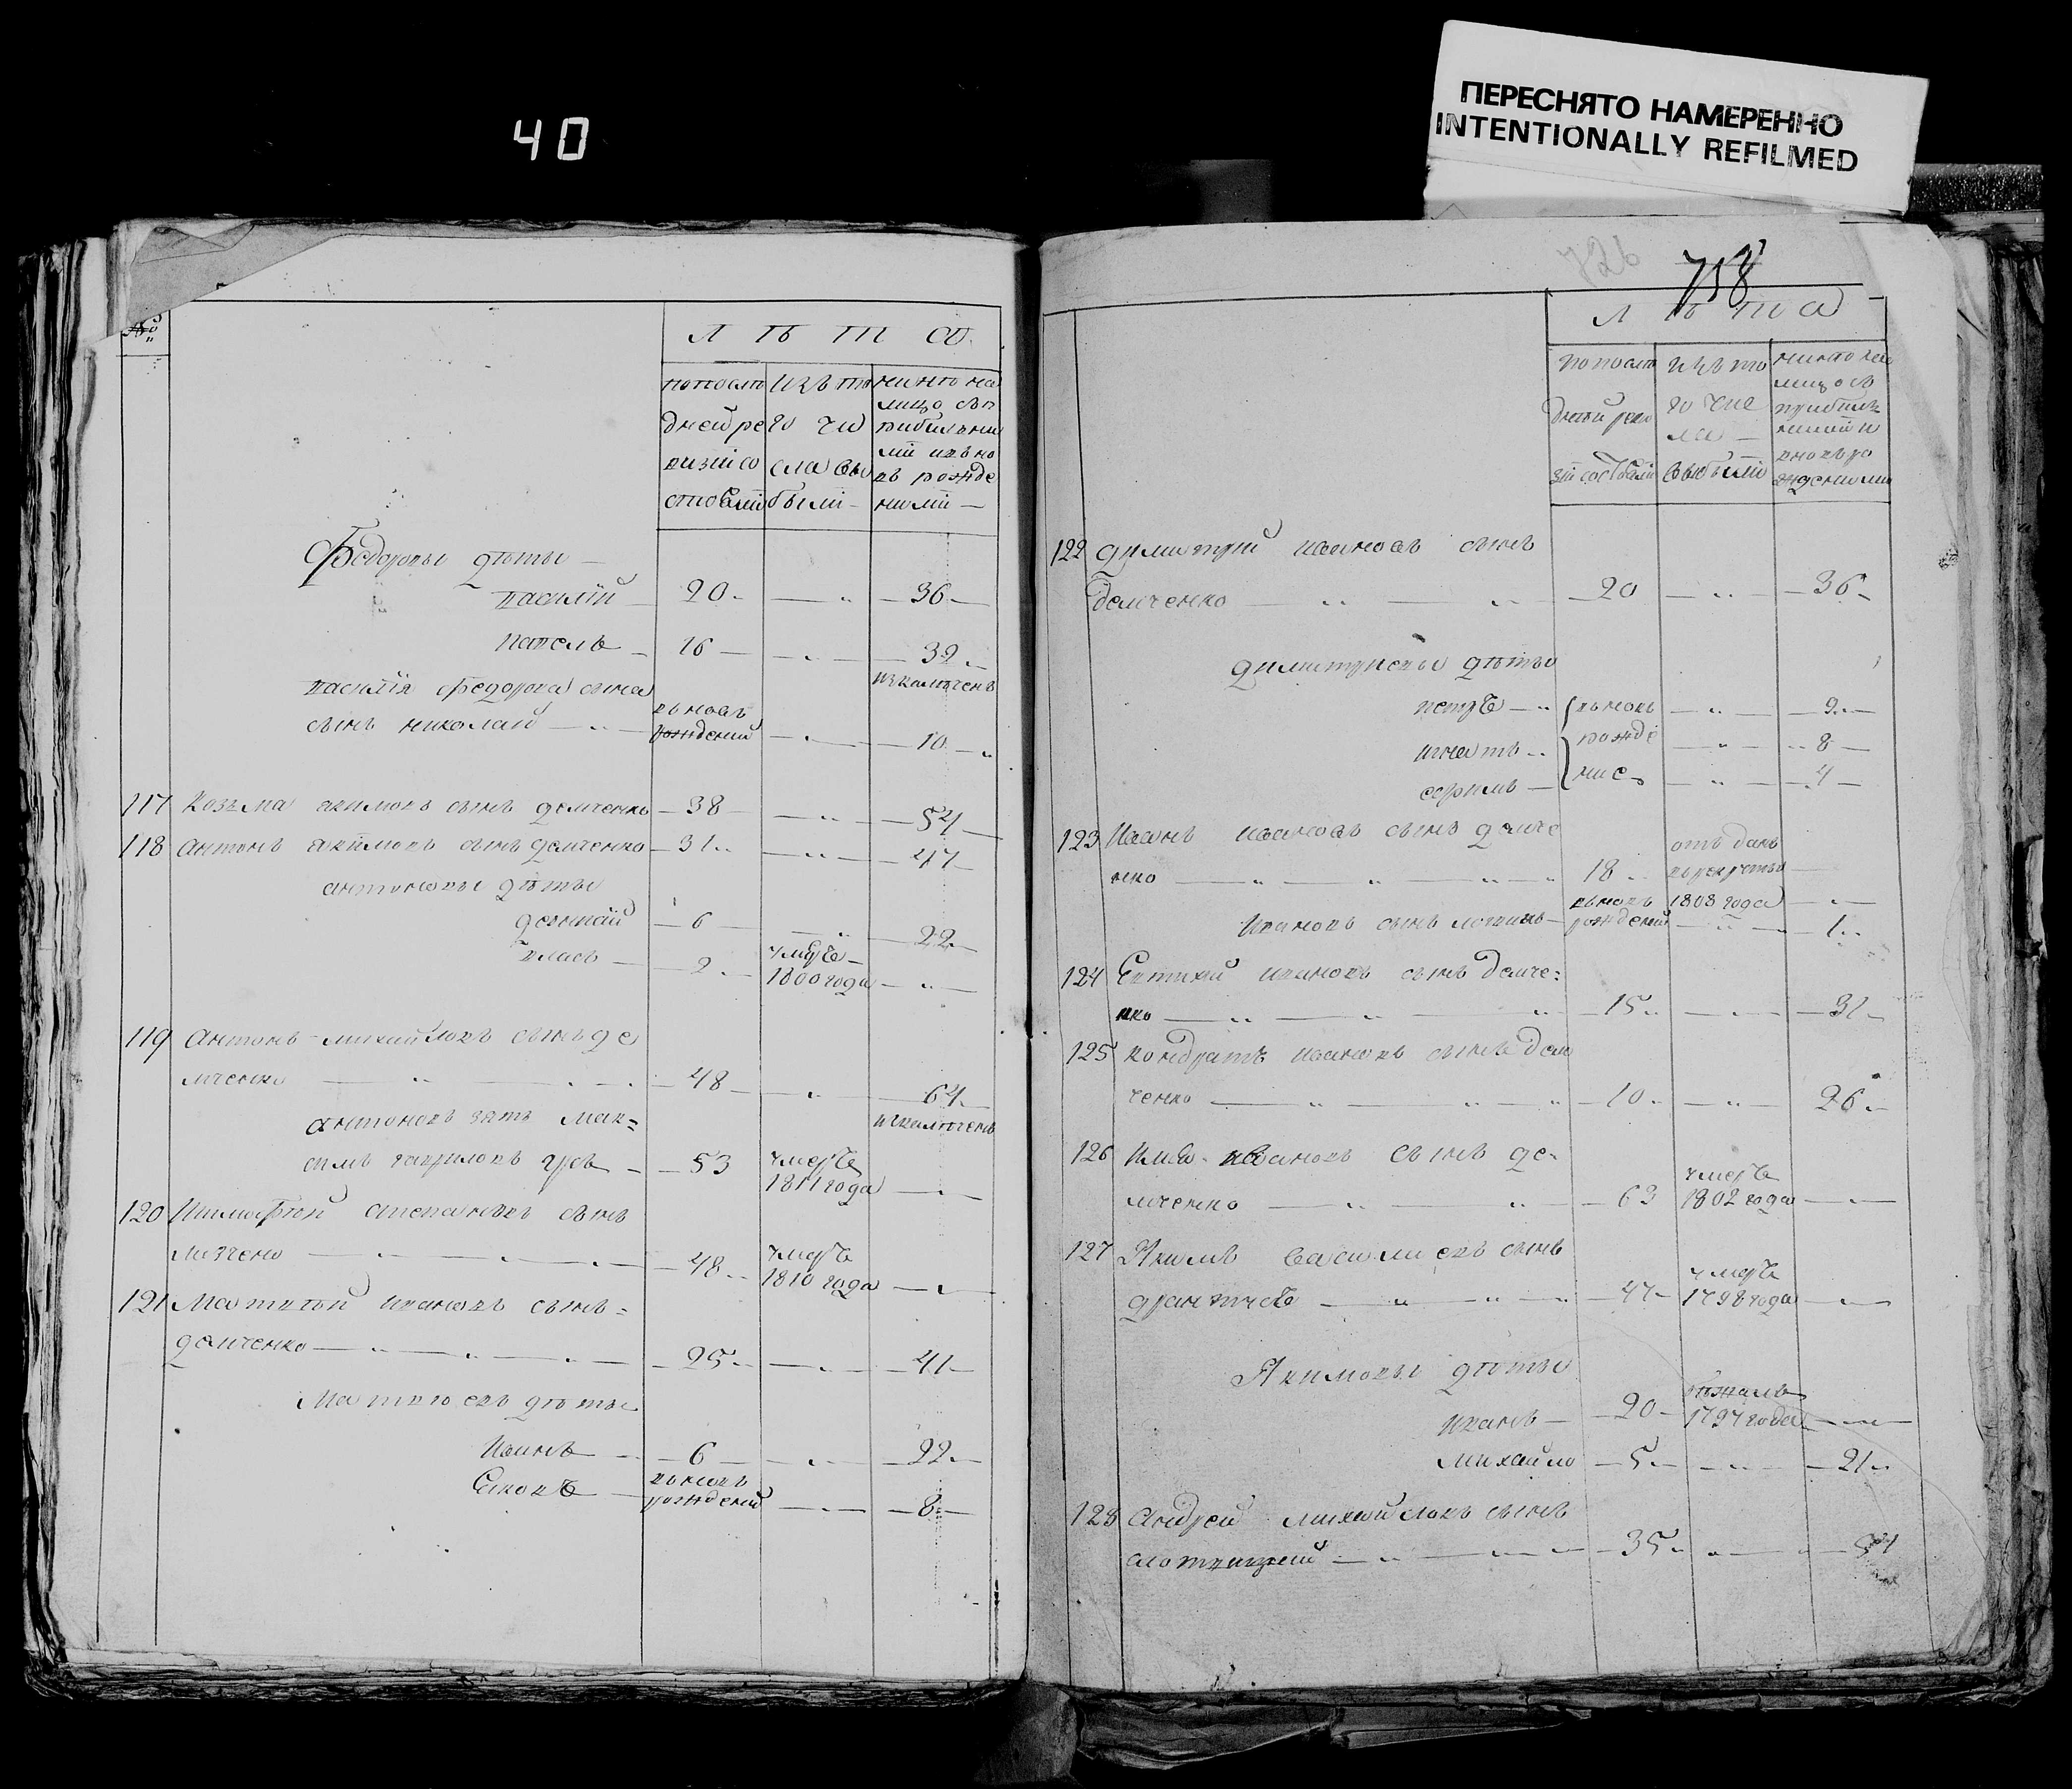 40
ПЕРЕСНЯТО НАМЕРЕННО
INTENTIONALLY REFILMED
№
Л Ѣ Т А
попослѣ
дней ре
визіи со
стояли
изъ то
го чи
сла вы
были
нынѣ на
лицо съ п
рибылыми
и вно
въ рожде
ными
Федоровы дѣти
василій 20 36
павелъ 16 32
василія федорова сына изключенъ
сынъ николай вновь рожденый 10
117 Козьма акимовъ сынъ демченко 38 54
118 антонъ акимовъ сынъ демченко 31 47
антоновы дѣти
6 22
власъ 2 умеръ 1800 года
119 антонъ михайловъ сынъ де
мченко 48 64
антоновъ зять мак= изключенъ
симъ гавриловъ 53 умеръ 1811 года
120 Тимофей степановъ сынъ
48 умеръ 1810 года
121 Матвѣй ивановъ сынъ
демченко 25 41
Матвѣевы дѣти
Иванъ 6 22
вновь рожденый 8
726
758
Л Ѣ Т А
попослѣ
дней реви
зіи состояли
изъ то
го чис
ла
выбыли
нынѣ на
лицо съ
прибылы
ми и
вновь ро
жденными
122 димитрий ивановъ сынъ
демченко 20 36
димитриевы дѣти
петръ вновь 9
игнатъ рожде 8
ные 4
123 Иванъ ивановъ сынъ демче
нко 18 отъданъ врекруты 1808 года
Ивановъ сынъ вновь рожденый 1
124 Евтихий ивановъ сынъ демче=
нко 15 31
125 кондратъ ивановъ сынъ дем
ченко 10 26
126 ивановъ сынъ де
мченко 63 умеръ 1802 года
127 Якимъ василиевъ сынъ
47 умеръ 1798 года
Якимовы дѣти
иванъ 20 бѣжалъ 1797 года
михайло 5 21
128 андрей михайловъ сынъ
35 51